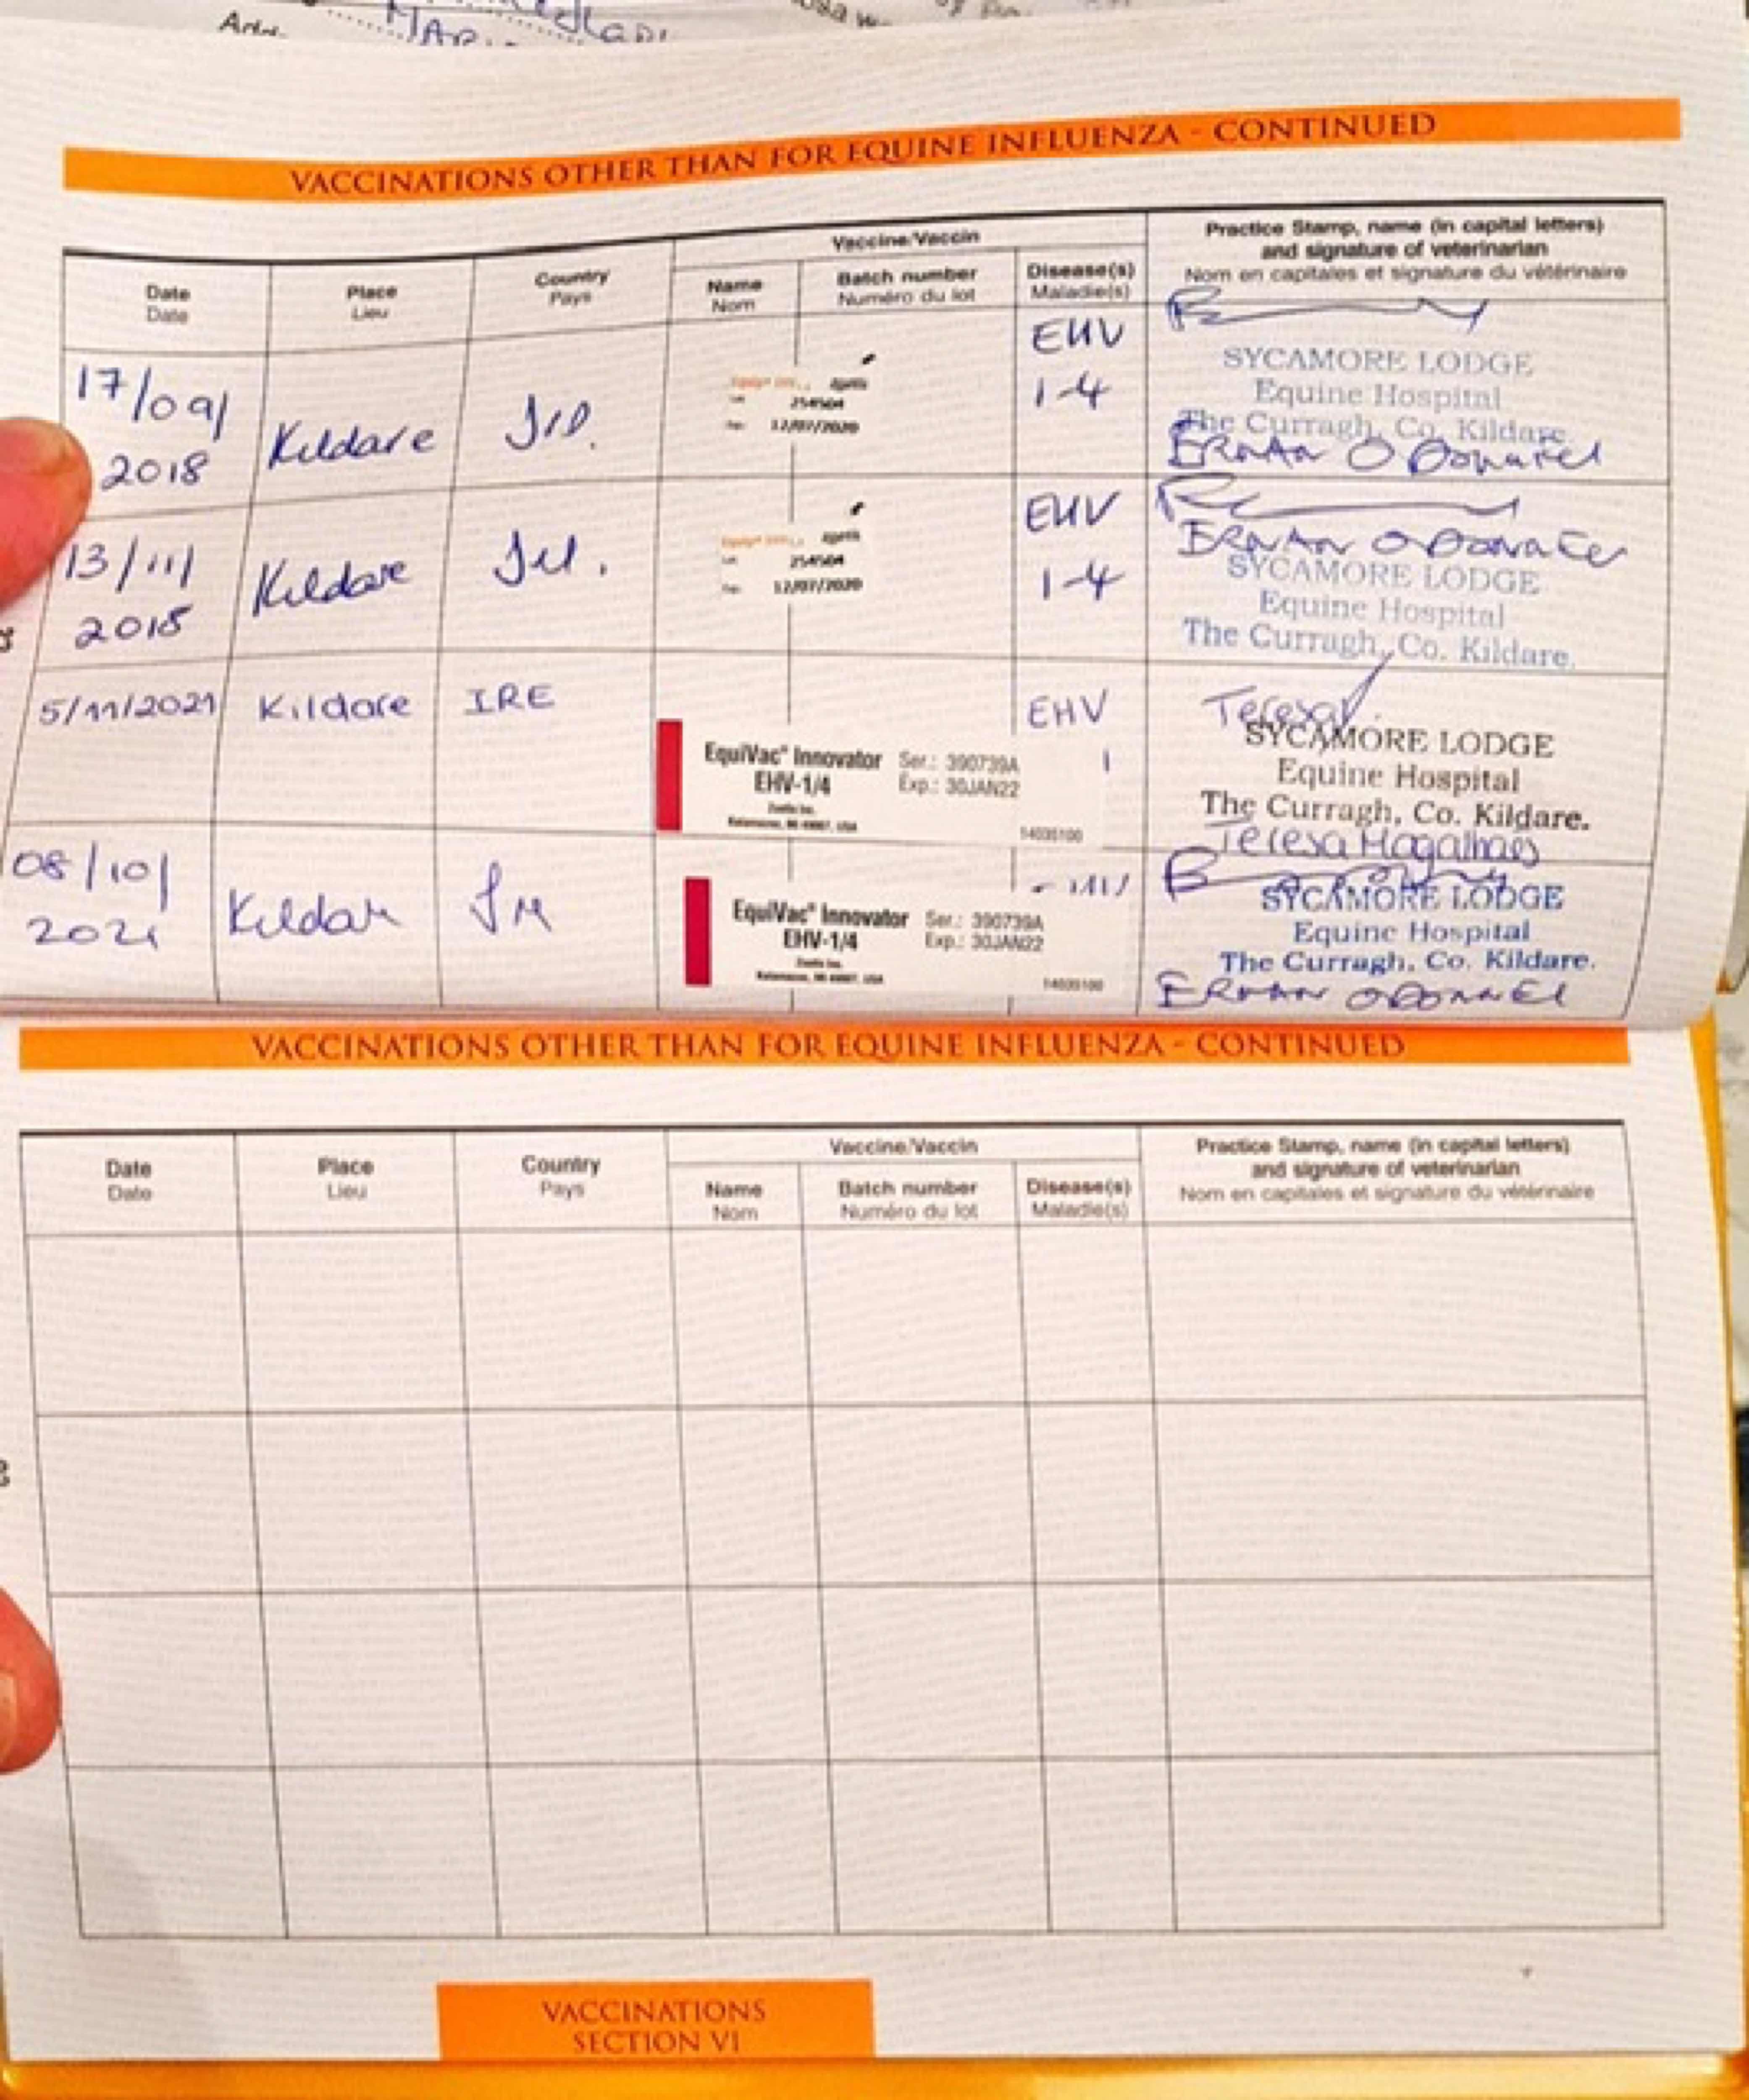 VACCINATIONS OTHER THAN FOR EQUINE INFLUENZA - CONTINUED
Date
Date
Place
Lieu
Country
Pays
Vaccine/Vaccin
Name
Nom
Batch number
Numéro du lot
Disease(s)
Maladie(s)
Practice Stamp, name (in capital letters)
and signature of veterinarian
Nom en capitales et signature du vétérinaire
17/09/
2018
Kildare
12/07/2020
EHV
1-4
SYCAMORE LODGE
Equine Hospital
The Curragh, Co. Kildare.
13/11/
2018
Kildare
12/07/2020
EHV
1-4
SYCAMORE LODGE
Equine Hospital
The Curragh, Co. Kildare.
5/11/2021
Kildare
IRE
EquiVac® Innovator
EHV-1/4
Zoetis Inc.
Kalamazoo, MI 49007, USA
Ser.: 390739A
Exp.: 30JAN22
14035100
EHV
1
Teresa
SYCAMORE LODGE
Equine Hospital
The Curragh, Co. Kildare.
Teresa Magalhaes
08/10/
2021
EquiVac® Innovator
EHV-1/4
Zoetis Inc.
Kalamazoo, MI 49007, USA
Ser.: 390739A
Exp.: 30JAN22
14035100
SYCAMORE LODGE
Equine Hospital
The Curragh, Co. Kildare.
VACCINATIONS OTHER THAN FOR EQUINE INFLUENZA - CONTINUED
Date
Date
Place
Lieu
Country
Pays
Vaccine/Vaccin
Name
Nom
Batch number
Numéro du lot
Disease(s)
Maladie(s)
Practice Stamp, name (in capital letters)
and signature of veterinarian
Nom en capitales et signature du vétérinaire
VACCINATIONS
SECTION VI